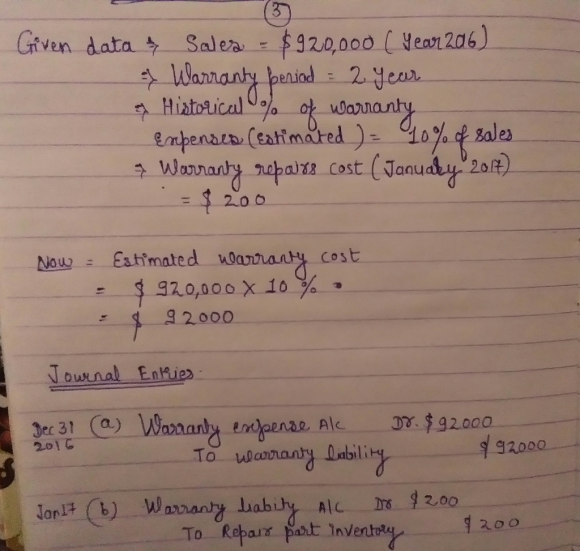 3
Given data ⇒ Sales = $920,000 (Year 206)
⇒ Warranty period = 2 year
⇒ Historical % of warranty
expenses (Estimated) = 10% of sales
⇒ Warranty repairs cost (January 2017)
= $ 200
Now = Estimated warranty cost
= $ 920,000 X 10 %
= $ 92000
Journal Entries
Dec 31 (a) Warranty expense A/c Dr. $ 92000
2016 To warranty liability $ 92000
Jan 17 (b) Warranty liabity A/c Dr $ 200
To Repair part inventory $ 200